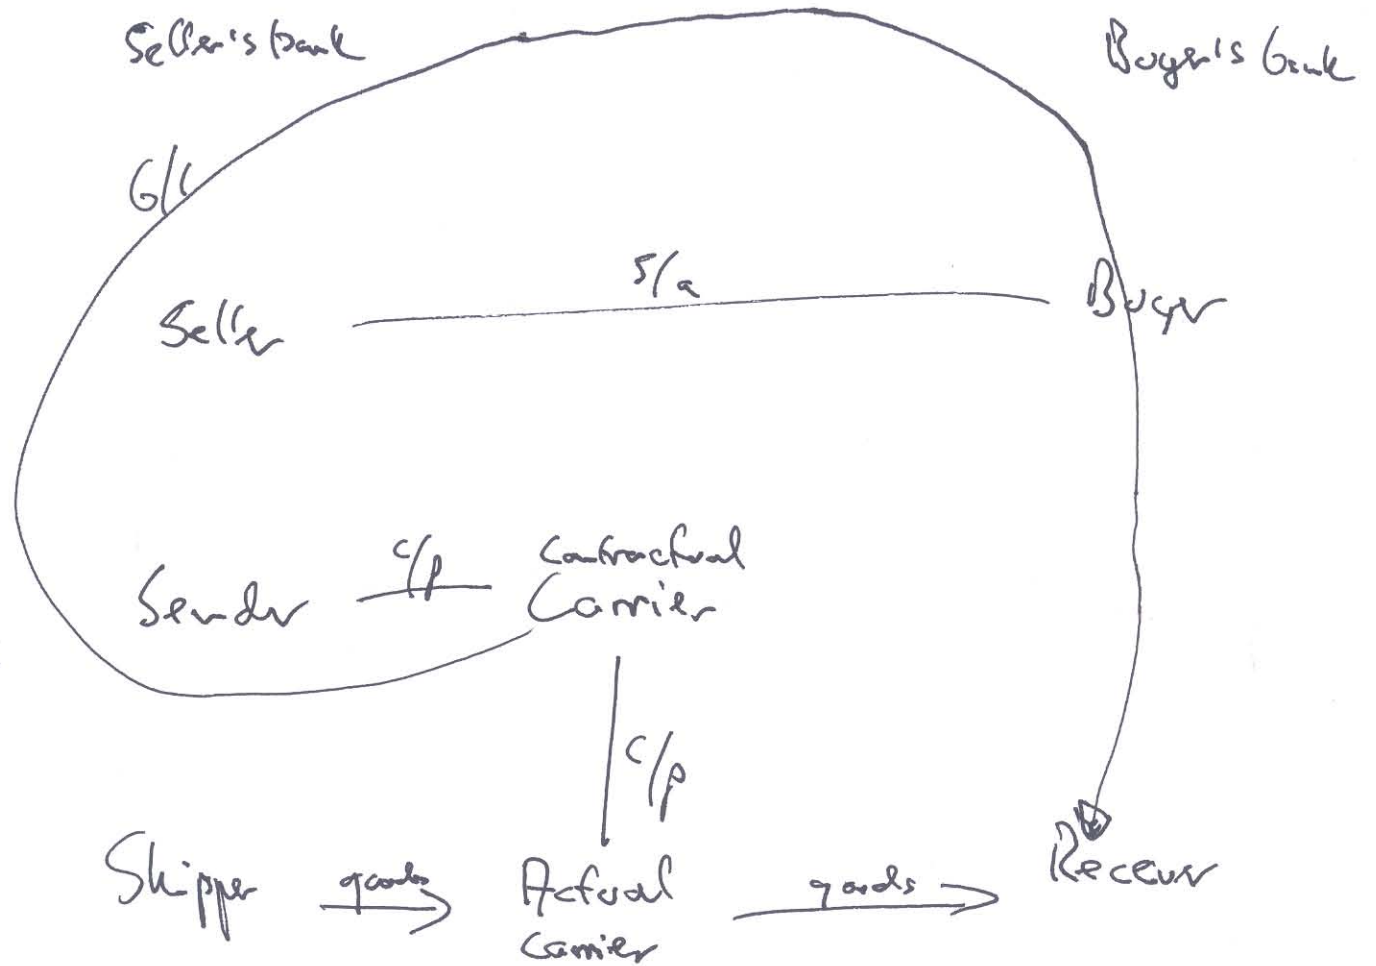 Seller's bank
Buyer's bank
B/L
S/a
Seller
Buyer
Sender
c/p
Contractual
Carrier
C/p
Shipper
goods
Actual
carrier
goods
Receiver